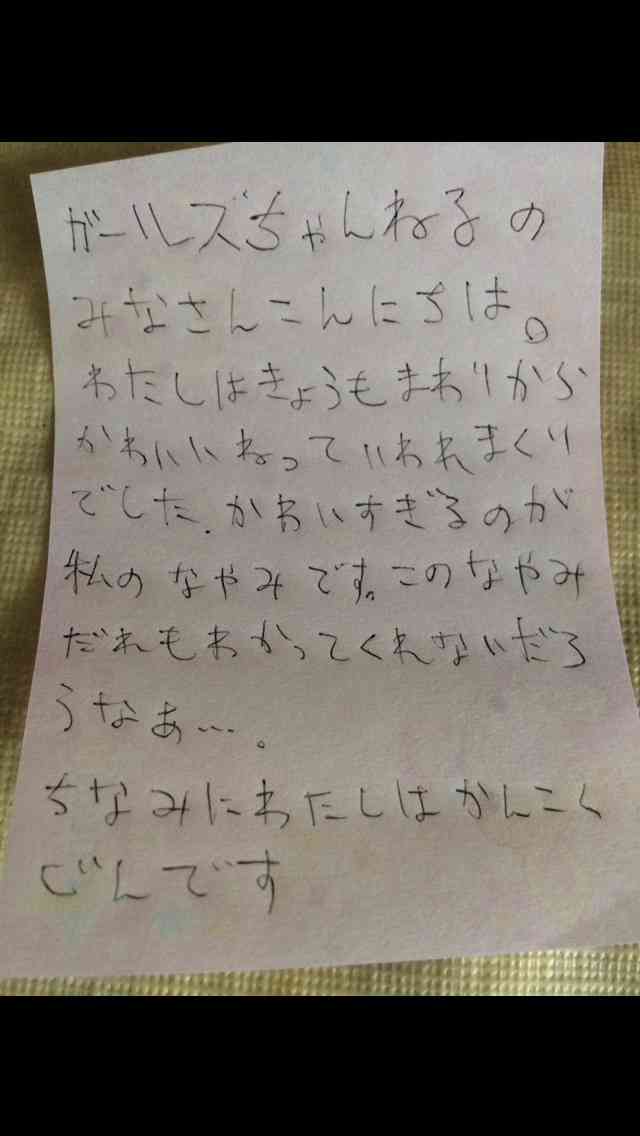 ガールズちゃんねるの
みなさんこんにちは。
わたしはきょうもまわりから
かわいいねっていわれまくり
でした.かわいすぎるのが
私のなやみです。このなやみ
だれもわかってくれないだろ
うなぁ…。
ちなみにわたしはかんこく
じんです